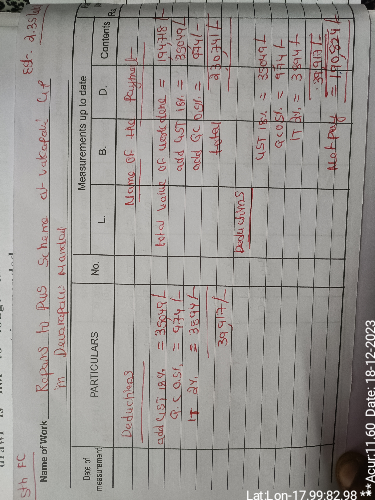 5th FC
Est- 2.35
Name of Work Repairs to PWS Scheme at Vakapadu G.P
in Devarapalli Mandal
Date of measurement
PARTICULARS
Measurements up to date
No.
L.
B.
D.
Contents
Name of the Payment
Deductions
add GST 18% = 35049/-
Q.C 0.5% = 974/-
IT 2% = 3894/-
39,917/-
total value of work done = 194718/-
add GST 18% = 35049/-
add QC 0.5% = 974/-
total 230,741/-
Deductions
GST 18% = 35049/-
QC 0.5% = 974/-
IT 2% = 3894/-
39,917/-
Net Pay = 190,824/-
Lat:Lon-17.99:82.98
***Acur:11.60 Date: 18-12-2023